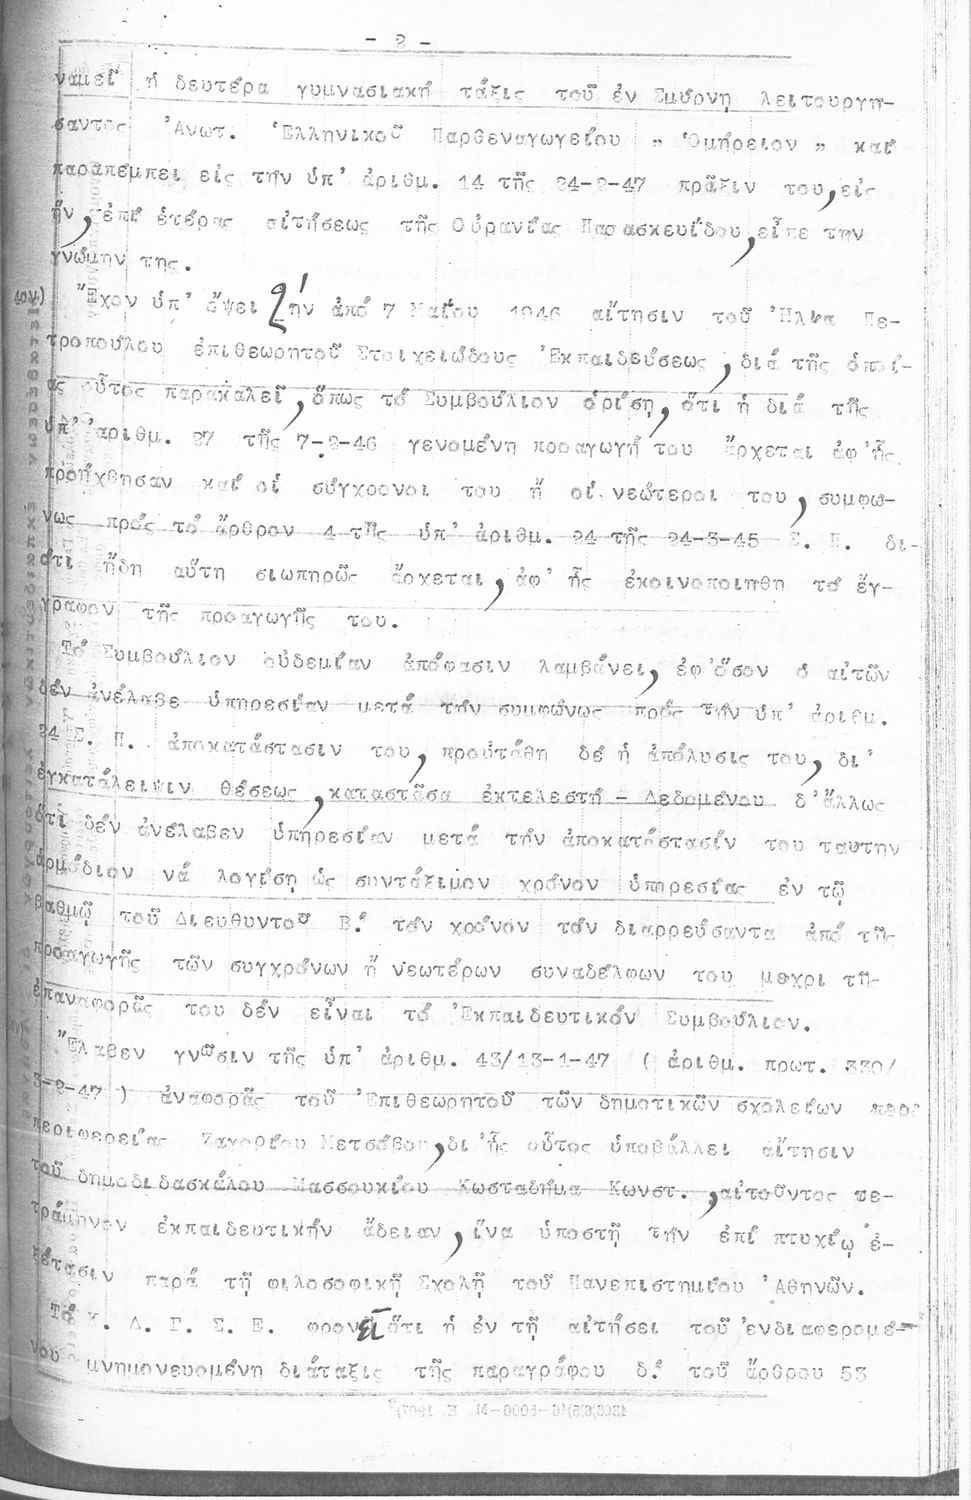 - 2 -
ναμεῖ ἡ δευτέρα γυμνασιακή τάξις τοῦ ἐν Σμύρνῃ λειτουργή-
σαντος Ἀνωτ. Ἑλληνικοῦ Παρθεναγωγείου „ Ὁμήρειον „ καί
παραπέμπει εἰς τήν ὑπ' ἀριθμ. 14 τῆς 24-2-47 πρᾶξιν του, εἰς
ἥν, ἐπί ἑτέρας αἰτήσεως τῆς Οὐρανίας Παρασκευΐδου, εἶπε την
γνώμην της.
4ον) Ἔχον ὑπ' ὄψει τήν ἀπό 7 Μαΐου 1946 αἴτησιν τοῦ Ἠλία Πε-
τροπούλου ἐπιθεωρητοῦ Στοιχειώδους Ἐκπαιδεύσεως, διά τῆς ὁποί-
ας οὗτος παρακαλεῖ, ὅπως τό Συμβούλιον ὁρίσῃ, ὅτι ἡ διά τῆς
ὑπ' ἀριθμ. 27 τῆς 7-2-46 γενομένη προαγωγή του ἄρχεται ἀφ' ἧς
προήχθησαν καί οἱ σύγχρονοι του ἤ οἱ νεώτεροι του, συμφώ-
νως πρός τό ἄρθρον 4 τῆς ὑπ' ἀριθμ. 24 τῆς 24-3-45 Σ. Π. δι-
ότι ἤδη αὕτη σιωπηρῶς ἄρχεται, ἀφ' ἧς ἐκοινοποιήθη τό ἔγ-
γραφον τῆς προαγωγῆς του.
Τό Συμβούλιον οὐδεμίαν ἀπόφασιν λαμβάνει, ἐφ' ὅσον ὁ αἰτῶν
δέν ἀνέλαβε ὑπηρεσίαν μετά τήν συμφώνως πρός τήν ὑπ' ἀριθμ.
24 Σ. Π. ἀποκατάστασιν του, προὐτάθη δέ ἡ ἀπόλυσις του, δι'
ἐγκατάλειψιν θέσεως, καταστᾶσα ἐκτελεστή - Δεδομένου δ' ἄλλως
ὅτι δέν ἀνέλαβεν ὑπηρεσίαν μετά τήν ἀποκατάστασίν του ταυτην
ἁρμόδιον νά λογίσῃ ὡς συντάξιμον χρόνον ὑπηρεσίας ἐν τῷ
βαθμῷ τοῦ Διευθυντοῦ Β.΄ τόν χρόνον τόν διαρρεύσαντα ἀπό τῆς
προαγωγῆς τῶν συγχρόνων ἤ νεωτέρων συναδέλφων του μεχρι τῆς
ἐπαναφορᾶς του δέν εἶναι τό Ἐκπαιδευτικόν Συμβούλιον.
Ἔλαβεν γνῶσιν τῆς ὑπ' ἀριθμ. 43/13-1-47 ( ἀριθμ. πρωτ. 330/
3-2-47 ) ἀναφορᾶς τοῦ Ἐπιθεωρητοῦ τῶν δημοτικῶν σχολείων
περιφερείας Ζαχαρίου Μετσόβου, δι' ἧς οὗτος ὑποβάλλει αἴτησιν
τοῦ δημοδιδασκάλου Μασσουκίου Κωσταδήμα Κωνστ. , αἰτοῦντος τε-
τράμηνον ἐκπαιδευτικήν ἄδειαν, ἵνα ὑποστῇ τήν ἐπί πτυχίῳ ἐ-
ξέτασιν παρά τῇ φιλοσοφικῇ Σχολῇ τοῦ Πανεπιστημίου Ἀθηνῶν.
Τό Κ. Δ. Γ. Σ. Ε. φρονεῖ ὅτι ἡ ἐν τῇ αἰτήσει τοῦ ἐνδιαφερομέ-
νου μνημονευομένη διάταξις τῆς παραγράφου δ.΄ τοῦ ἄρθρου 53